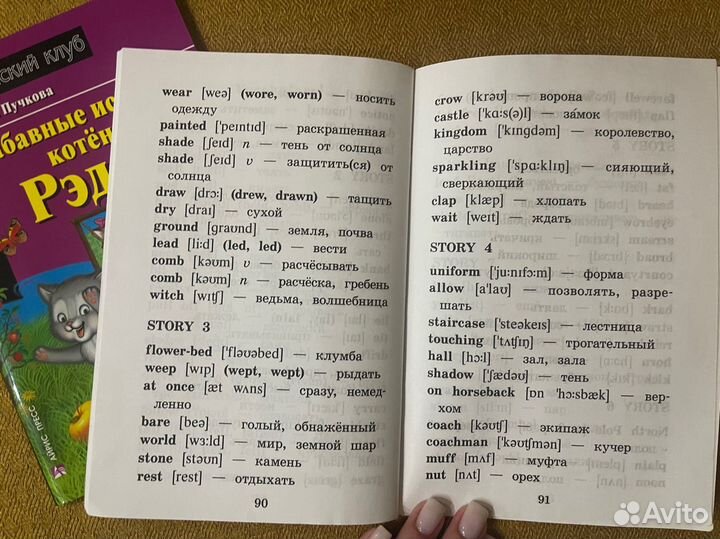 ский клуб
Пучкова
бавные ис
котён
Рэд
АЙРИС ПРЕСС
wear [weə] (wore, worn) — носить
одежду
painted ['peɪntɪd] — раскрашенная
shade [ʃeɪd] n — тень от солнца
shade [ʃeɪd] v — защитить(ся) от
солнца
draw [drɔ:] (drew, drawn) — тащить
dry [draɪ] — сухой
ground [graʊnd] — земля, почва
lead [li:d] (led, led) — вести
comb [kəʊm] v — расчёсывать
comb [kəʊm] n — расчёска, гребень
witch [wɪʧ] — ведьма, волшебница
STORY 3
flower-bed ['flaʊəbed] — клумба
weep [wɪp] (wept, wept) — рыдать
at once [æt wʌns] — сразу, немед-
ленно
bare [beə] — голый, обнажённый
world [wɜ:ld] — мир, земной шар
stone [stəʊn] — камень
rest [rest] — отдыхать
90
crow [krəʊ] — ворона
castle ['kɑ:s(ə)l] — замок
kingdom ['kɪŋdəm] — королевство,
царство
sparkling ['spɑ:klɪŋ] — сияющий,
сверкающий
clap [klæp] — хлопать
wait [weɪt] — ждать
STORY 4
uniform ['ju:nɪfɔ:m] — форма
allow [ə'laʊ] — позволять, разре-
шать
staircase ['steəkeɪs] — лестница
touching ['tʌʧɪŋ] — трогательный
hall [hɔ:l] — зал, зала
shadow ['ʃædəʊ] — тень
on horseback [ɒn 'hɔ:sbæk] — вер-
хом
coach [kəʊʧ] — экипаж
coachman ['kəʊʧmən] — кучер
muff [mʌf] — муфта
nut [nʌt] — орех
91
Avito